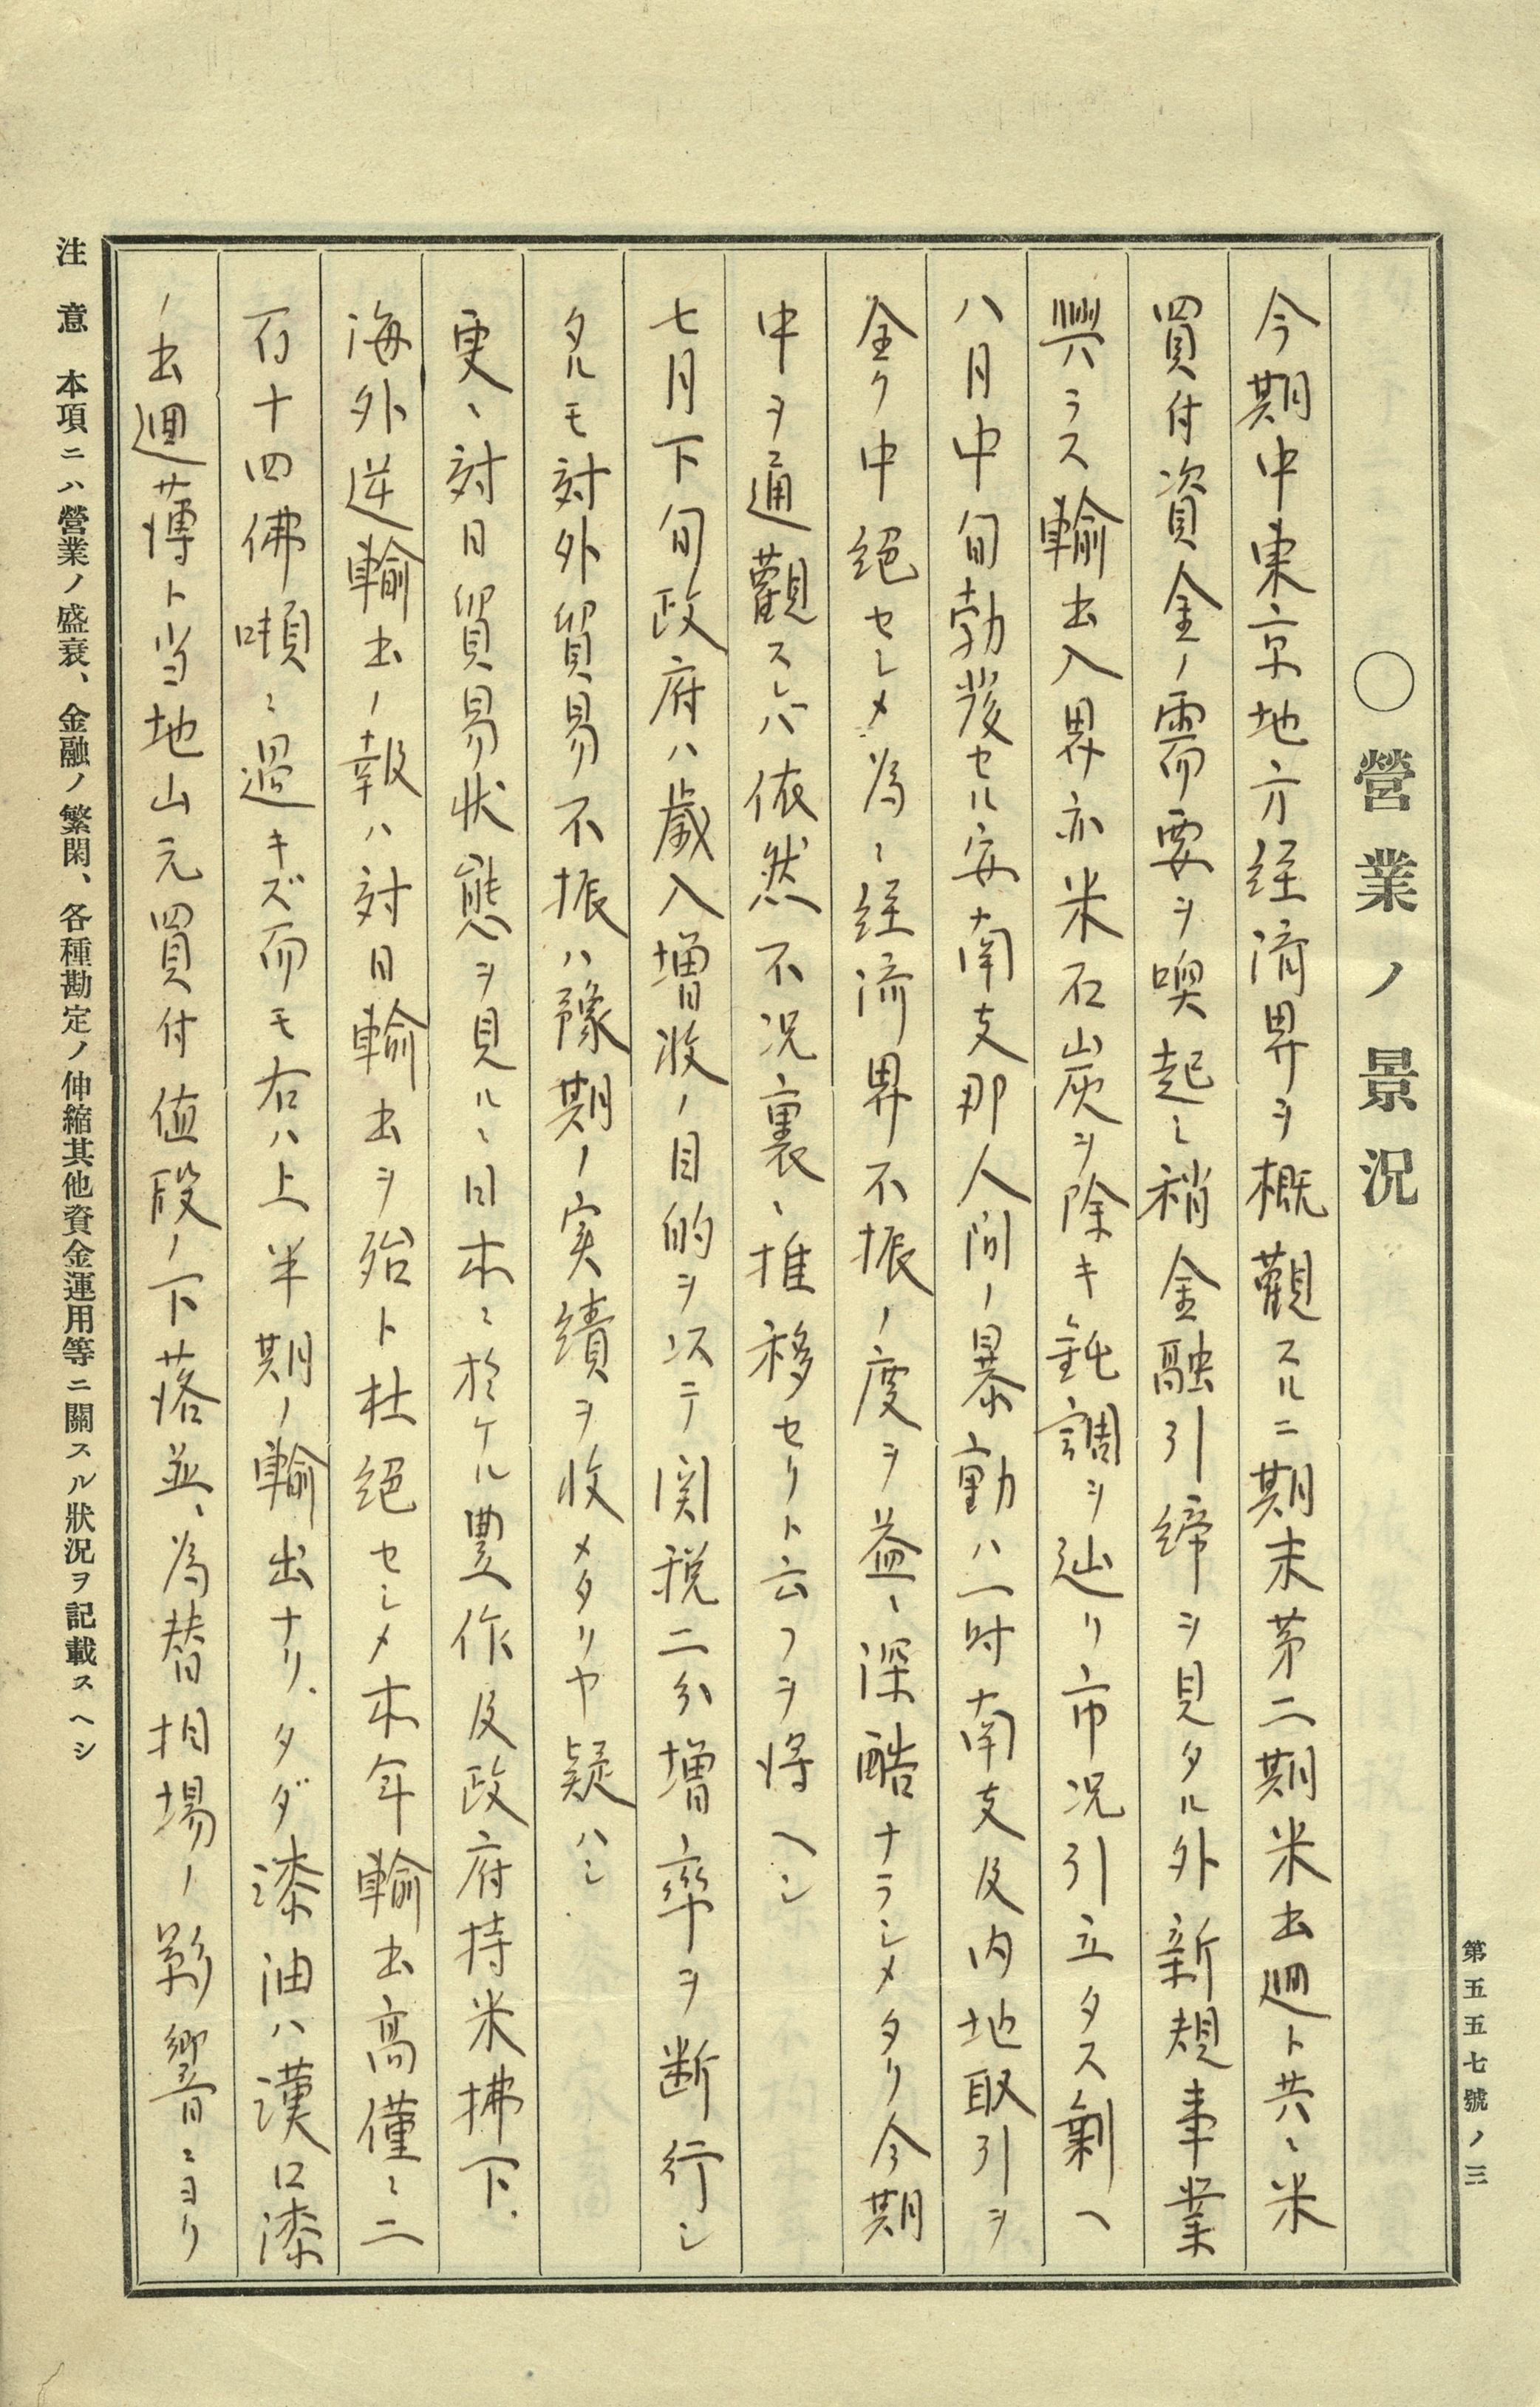 第五五七號ノ三
〇營業ノ景況
今期中東京地方経済界ヲ概觀スルニ期末第二期米出廻ト共ニ米
買付資金ノ需要ヲ喫起シ稍金融引締ヲ見タル外新規事業
興ラス輸出入界亦米石炭ヲ除キ鈍調ヲ辿リ市況引立タス剰ヘ
八月中旬勃発セル安南支那人间ノ暴動ハ一時南支及内地取引ヲ
全ク中絕セシメ為ニ経済界不振ノ度ヲ益々深酷ナラシメタリ今期
中ヲ通觀スレバ依然不況裏ニ推移セリト云フヲ得ヘシ
七月下旬政府ハ歳入増收ノ目的ヲ以テ関税二分増率ヲ断行シ
タルモ対外貿易不振ハ豫期ノ実績ヲ收メタリヤ疑ハシ
更ニ対日貿易状態ヲ見ルニ日本ニ於ケル豊作及政府持米拂下、
海外逆輸出ノ報ハ対日輸出ヲ殆ト杜絕セシメ本年輸出高僅ニ二
百十四佛噸ニ過キズ而モ右ハ上半期ノ輸出ナリ、タダ漆油ハ漢口漆
ノ出廻薄ト当地山元買付値段ノ下落並ニ為替相場ノ影響ニヨリ
注意 本項ニハ營業ノ盛衰、金融ノ繁閑、各種勘定ノ伸縮其他資金運用等ニ關スル狀況ヲ記載スヘシ